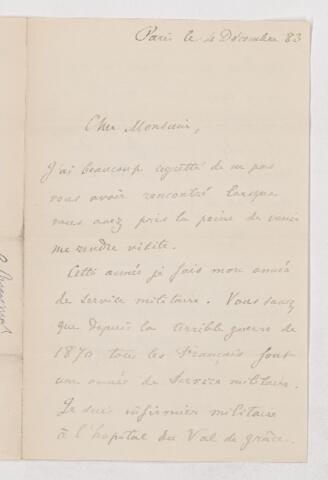 Paris le 4 Décembre 83
Cher Monsieur,
J'ai beaucoup regretté de ne pas
vous avoir rencontré lorsque
vous avez pris la peine de venir
me rendre visite.
Cette année je fais mon année
de service militaire. Vous savez
que depuis la terrible guerre de
1870 tous les Français font
une année de service militaire.
Je suis infirmier militaire
à l'hopital du Val de grâce.